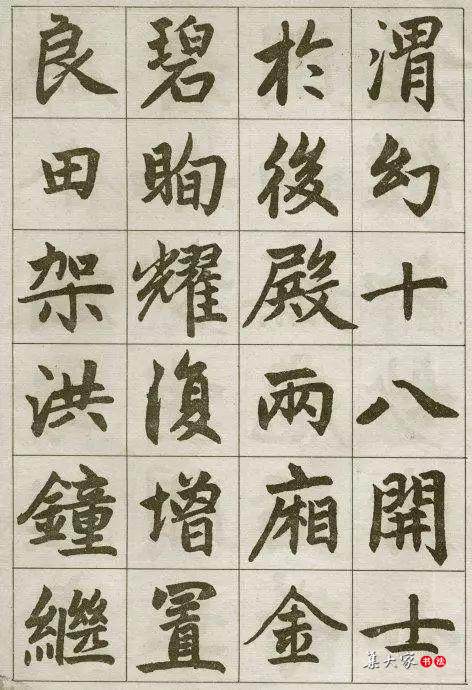 渭幻十八開士
於後殿兩廂金
碧眴耀復增置
良田架洪鐘繼
集大家 书法